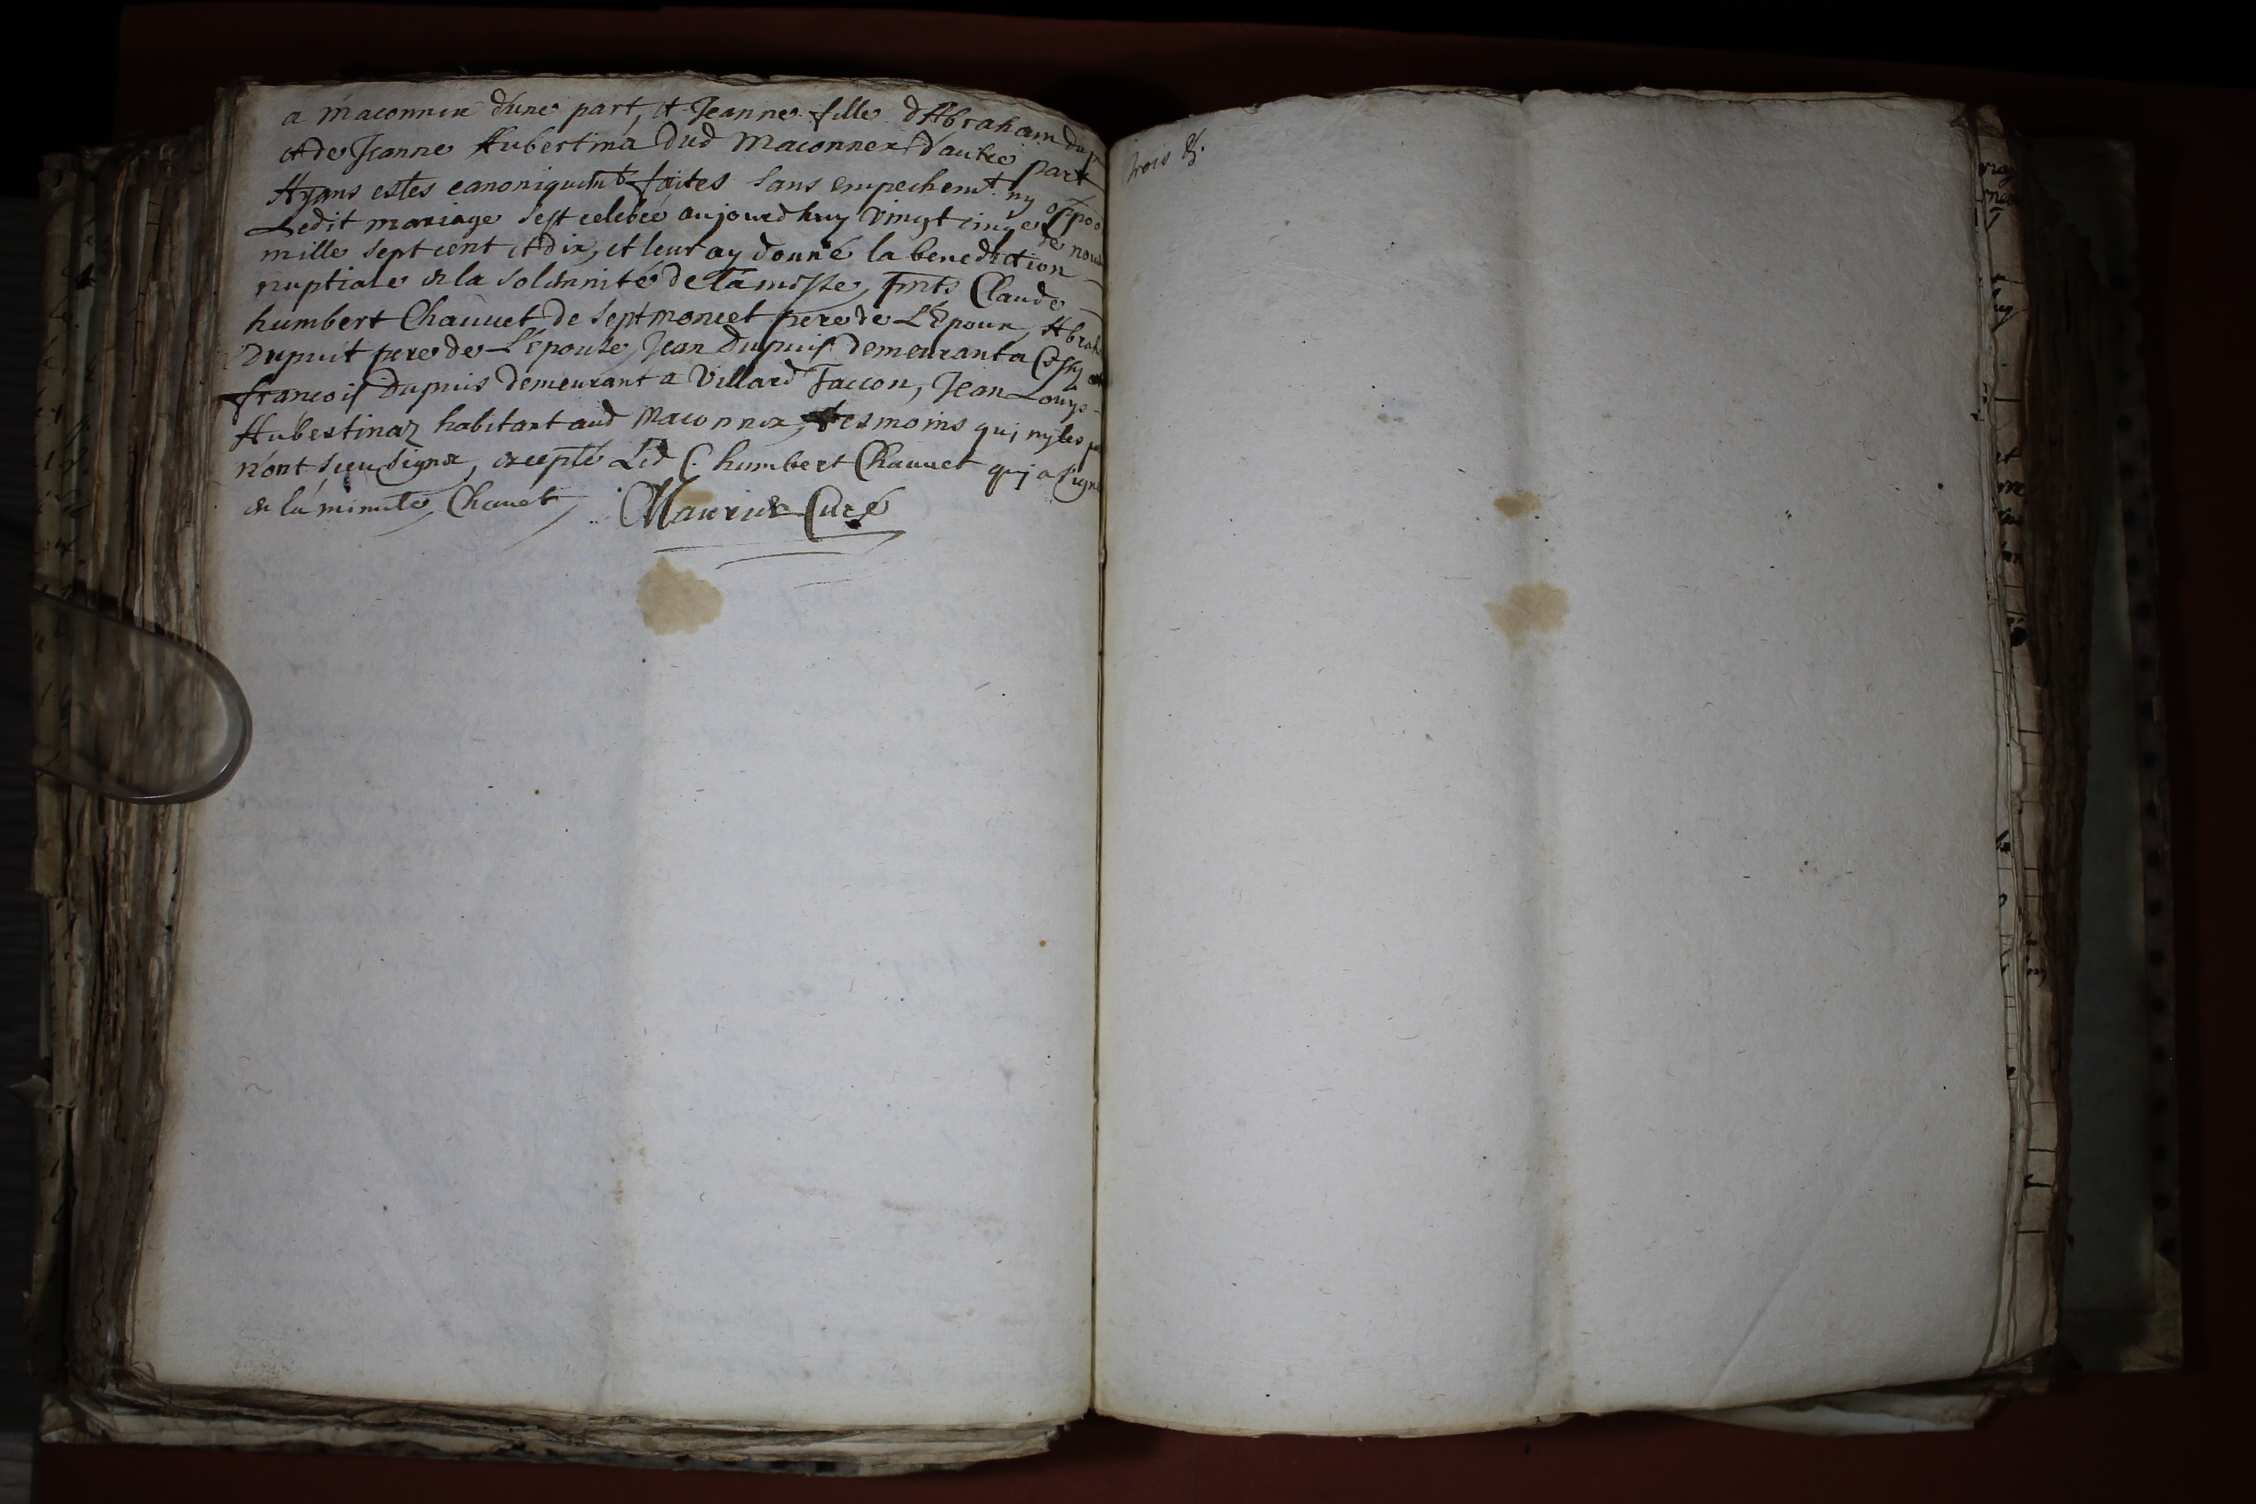 a maconnex d'une part, et Jeanne fille d'Abraham dup
et de Jeanne Hubertina dud maconnex d'autre part
Ayans estes canoniquemt faites sans empechemt ny oppos
Ledit mariage s'est celebré aujourdhuy vingt cinq de nov
mille sept cent et dix, et leur ay donné la benediction
nuptiale en la solemnité de la messe, pnts Claude
humbert Chauvet de Septmoncel pere de L'Epoux, Abrah
Dupuit pere de L'épouse, Jean Dupuis demeurant a Cessy
françois Dupuis demeurant a Villard Taccon, Jean Louys
Hubertinaz habitant aud maconnex, tesmoins qui ny les
n'ont sceu signer, excepté Led C. humbert Chauvet qui a signé
en la minute, Chauvet, Maurier Curé
trois &.